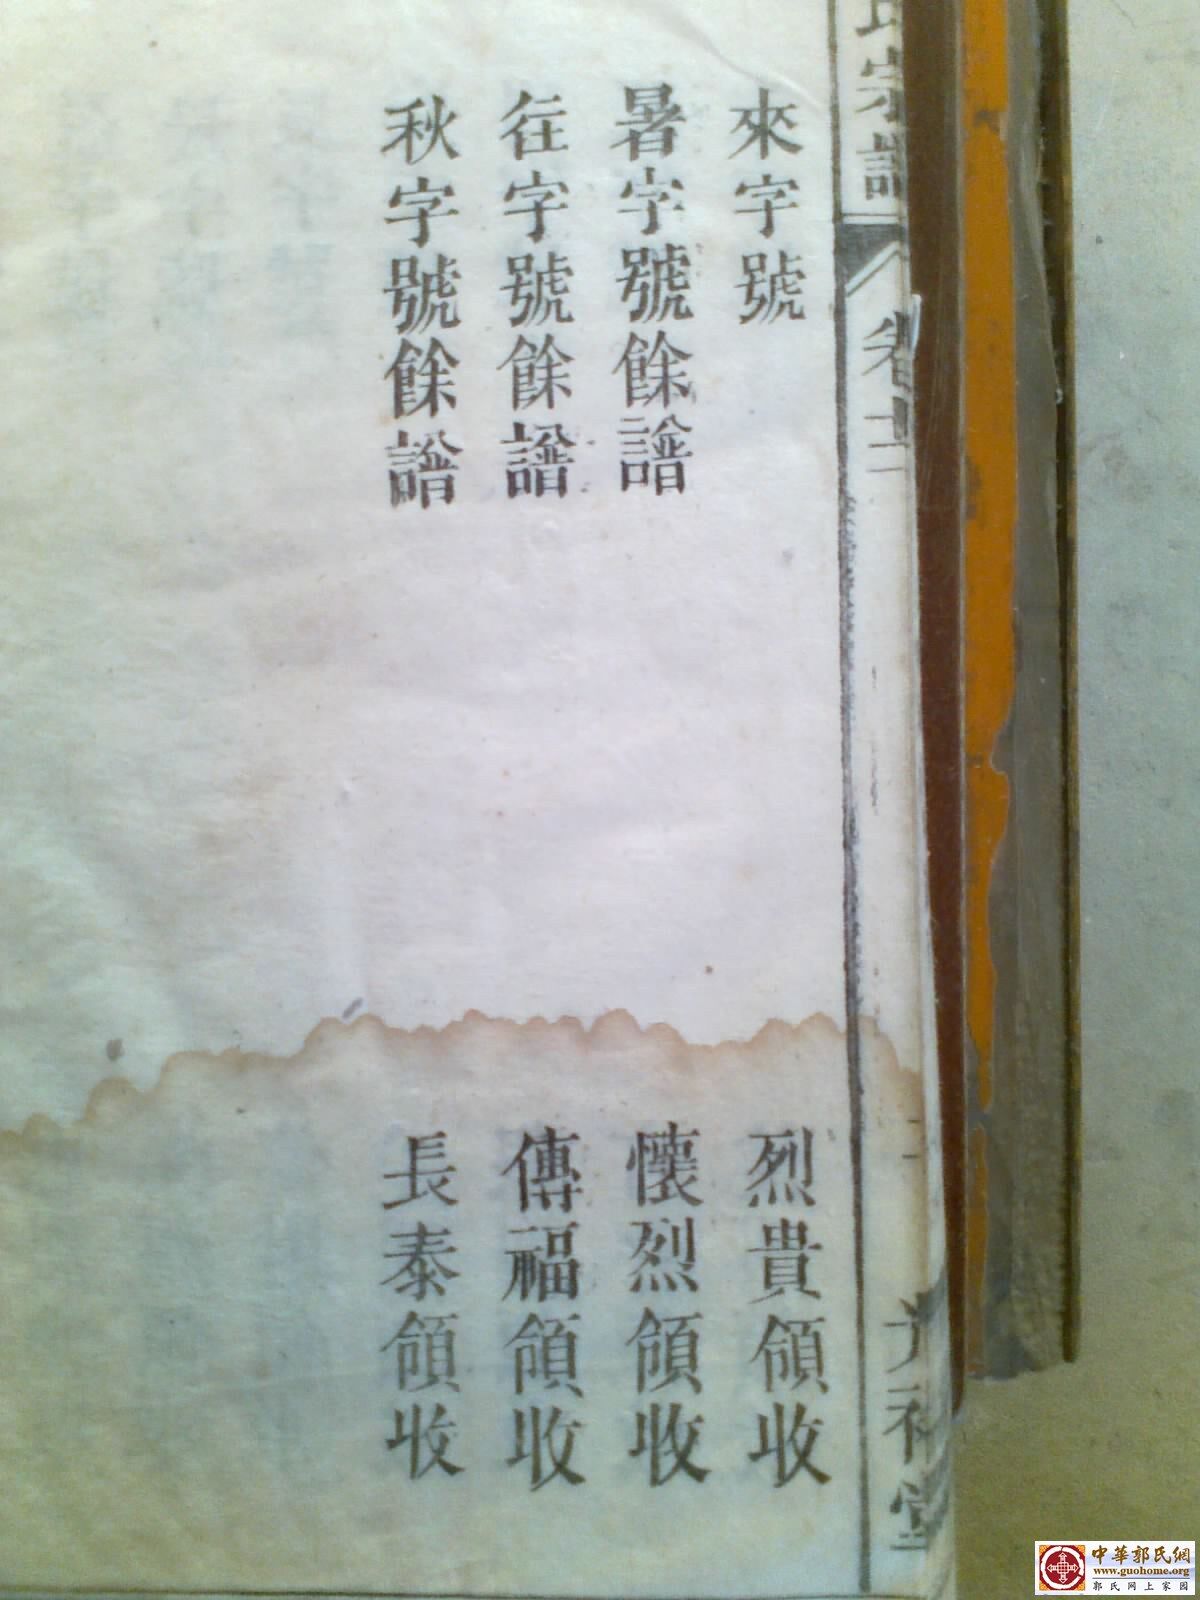 來字號 烈貴領收
暑字號餘譜 懷烈領收
往字號餘譜 傳福領收
秋字號餘譜 長泰領收
氏宗譜 卷十二 堂
中華郭氏網
www.guohome.org
郭氏网上家园